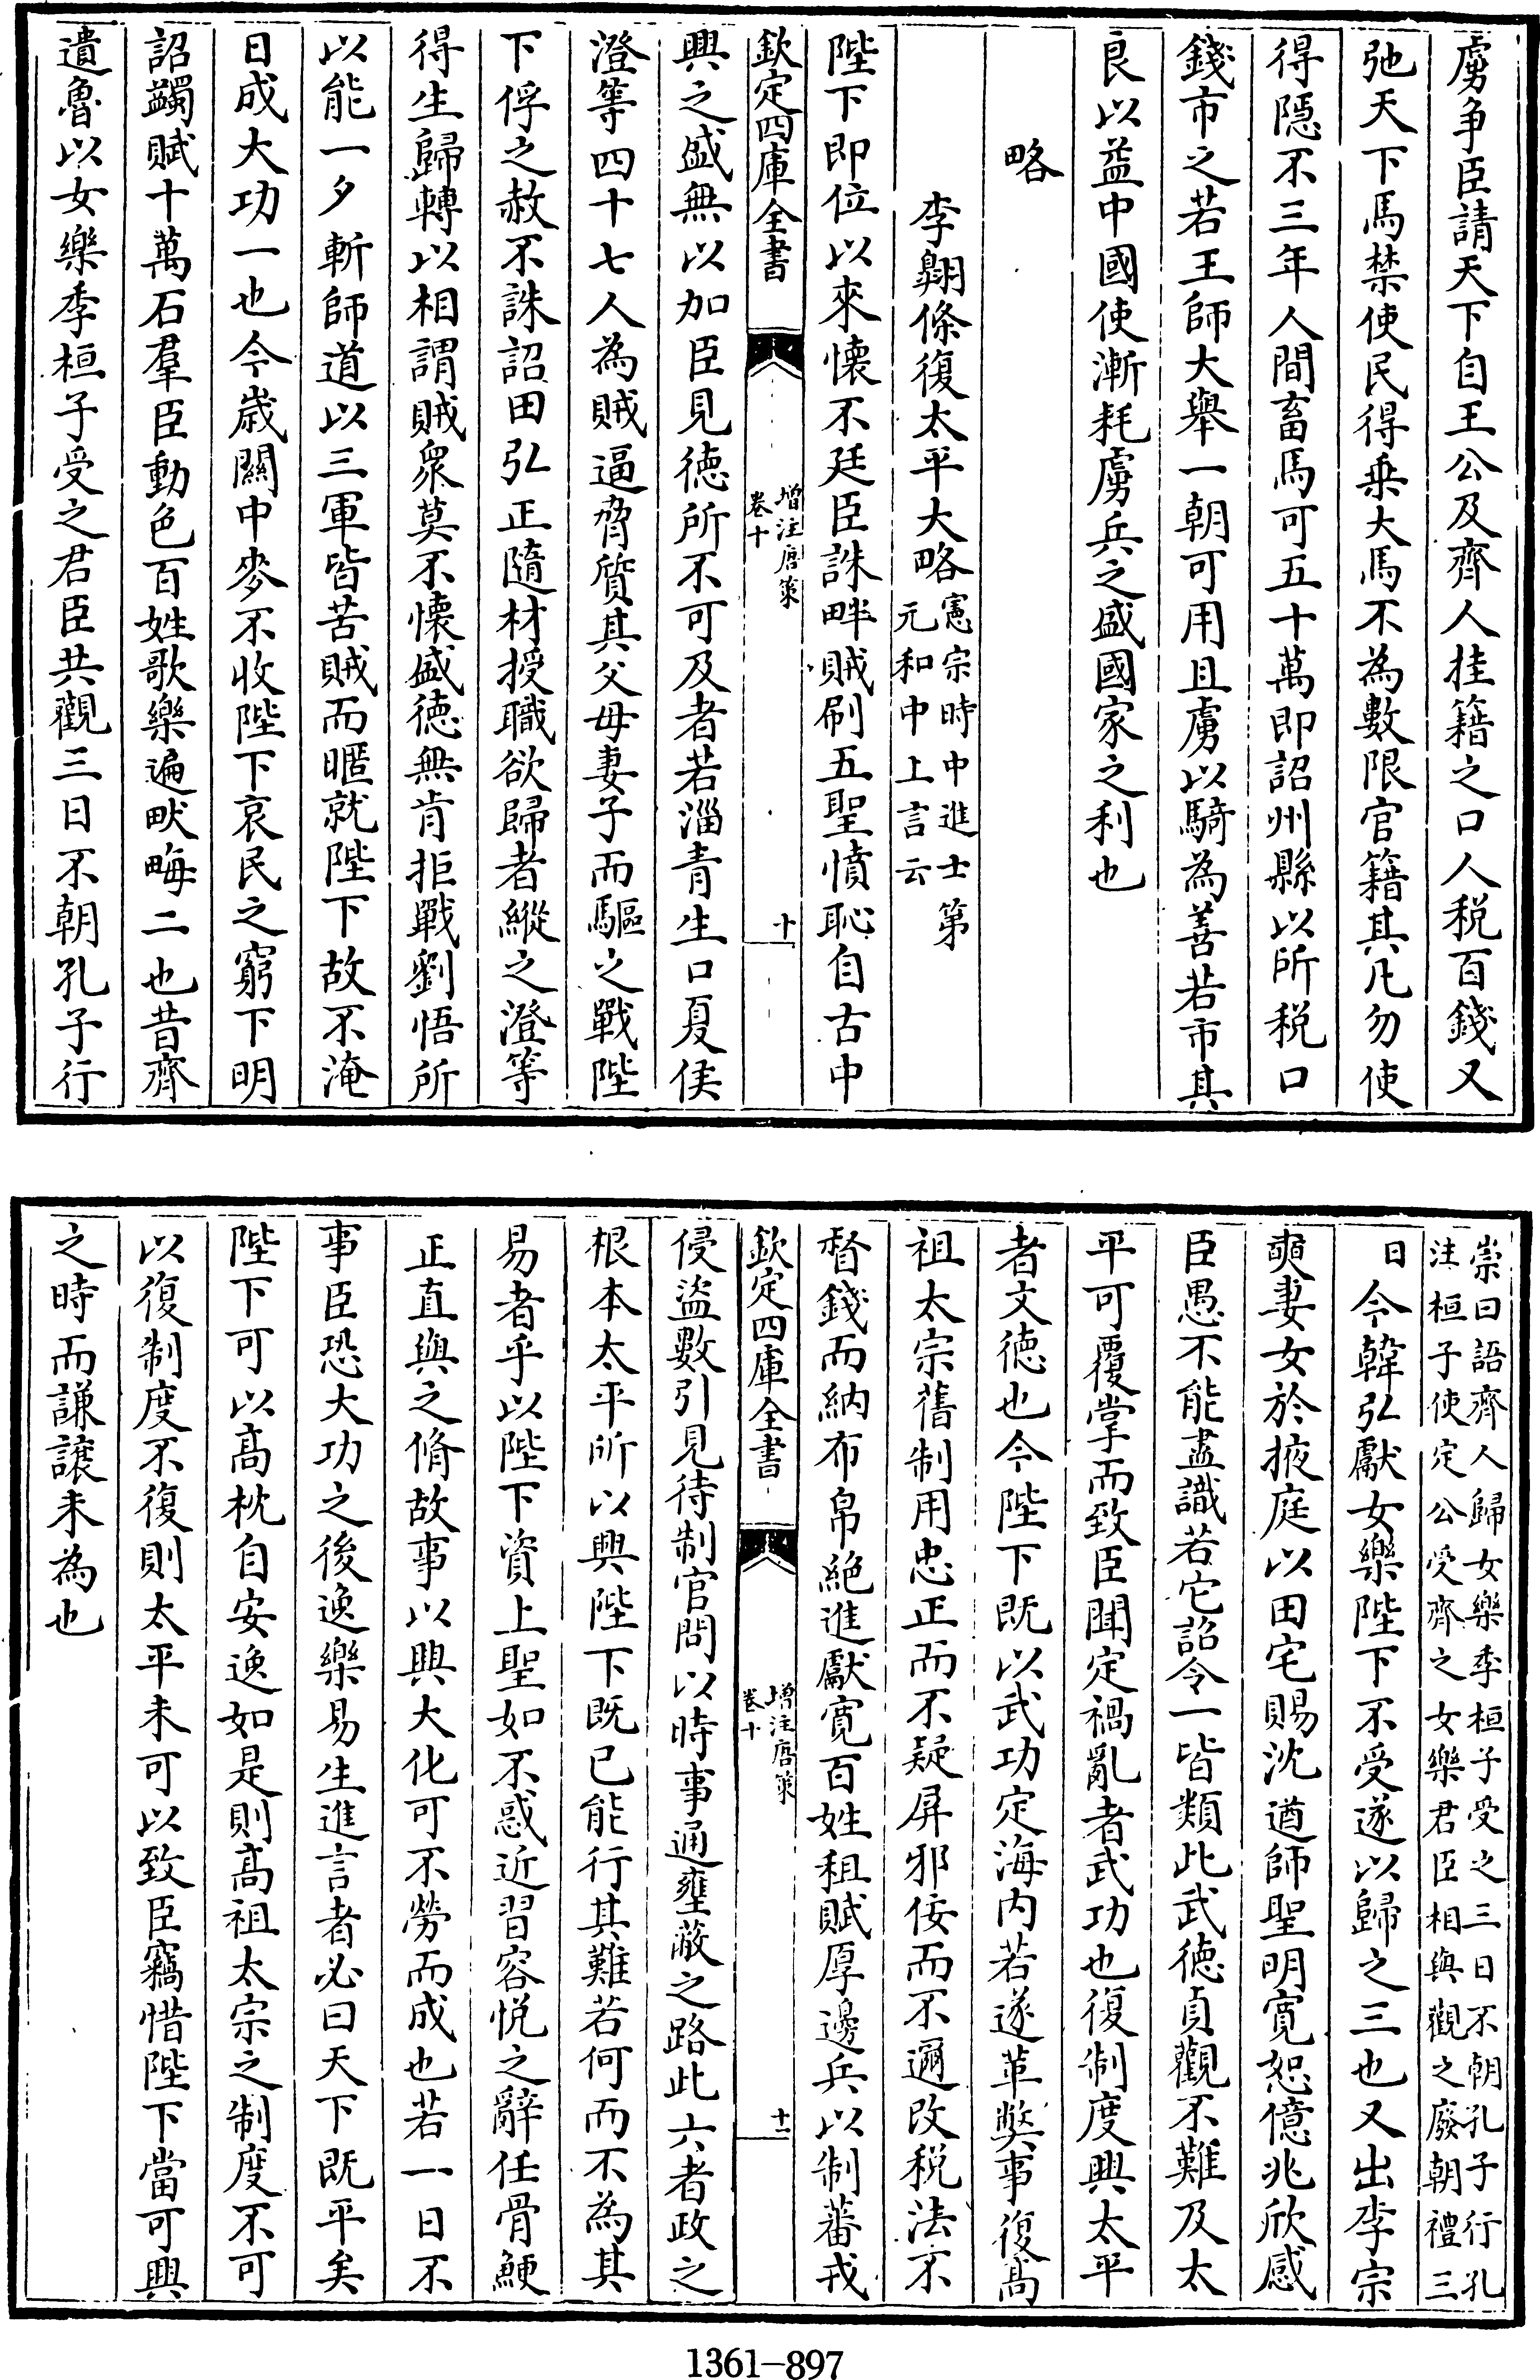 虜争臣請天下自王公及齊人挂籍之口人税百錢又
弛天下馬禁使民得乗大馬不為數限官籍其凡勿使
得隱不三年人間畜馬可五十萬即詔州縣以所税口
錢市之若王師大舉一朝可用且虜以騎為善若市其
良以益中國使漸耗虜兵之盛國家之利也
略
李翺條復太平大略憲宗時中進士第
元和中上言云
陛下即位以來懐不廷臣誅畔賊刷五聖憤恥自古中
欽定四庫全書
增注唐策
卷十
十
興之盛無以加臣見徳所不可及者若淄青生口夏侯
澄等四十七人為賊逼脅質其父母妻子而驅之戰陛
下俘之赦不誅詔田弘正隨材授職欲歸者縱之澄等
得生歸轉以相謂賊衆莫不懐盛徳無肯拒戰劉悟所
以能一夕斬師道以三軍皆苦賊而暱就陛下故不淹
日成大功一也今歳關中麥不收陛下哀民之窮下明
詔蠲賦十萬石羣臣動色百姓歌樂遍畎畮二也昔齊
遺魯以女樂季桓子受之君臣共觀三日不朝孔子行
崇曰語齊人歸女樂季桓子受之三日不朝孔子行孔
注桓子使定公受齊之女樂君臣相與觀之廢朝禮三
日今韓弘獻女樂陛下不受遂以歸之三也又出李宗
奭妻女於掖庭以田宅賜沈遒師聖明寛恕億兆欣感
臣愚不能盡識若它詔令一皆類此武徳貞觀不難及太
平可覆掌而致臣聞定禍亂者武功也復制度興太平
者文徳也今陛下既以武功定海内若遂革弊事復髙
祖太宗舊制用忠正而不疑屏邪佞而不邇改税法不
督錢而納布帛絶進獻寛百姓租賦厚邊兵以制蕃戎
欽定四庫全書
增注唐策
卷十
十一
侵盜數引見待制官問以時事通壅蔽之路此六者政之
根本太平所以興陛下既已能行其難若何而不為其
易者乎以陛下資上聖如不惑近習容悦之辭任骨鯁
正直與之脩故事以興大化可不勞而成也若一日不
事臣恐大功之後逸樂易生進言者必曰天下既平矣
陛下可以髙枕自安逸如是則髙祖太宗之制度不可
以復制度不復則太平未可以致臣竊惜陛下當可興
之時而謙讓未為也
1361-897